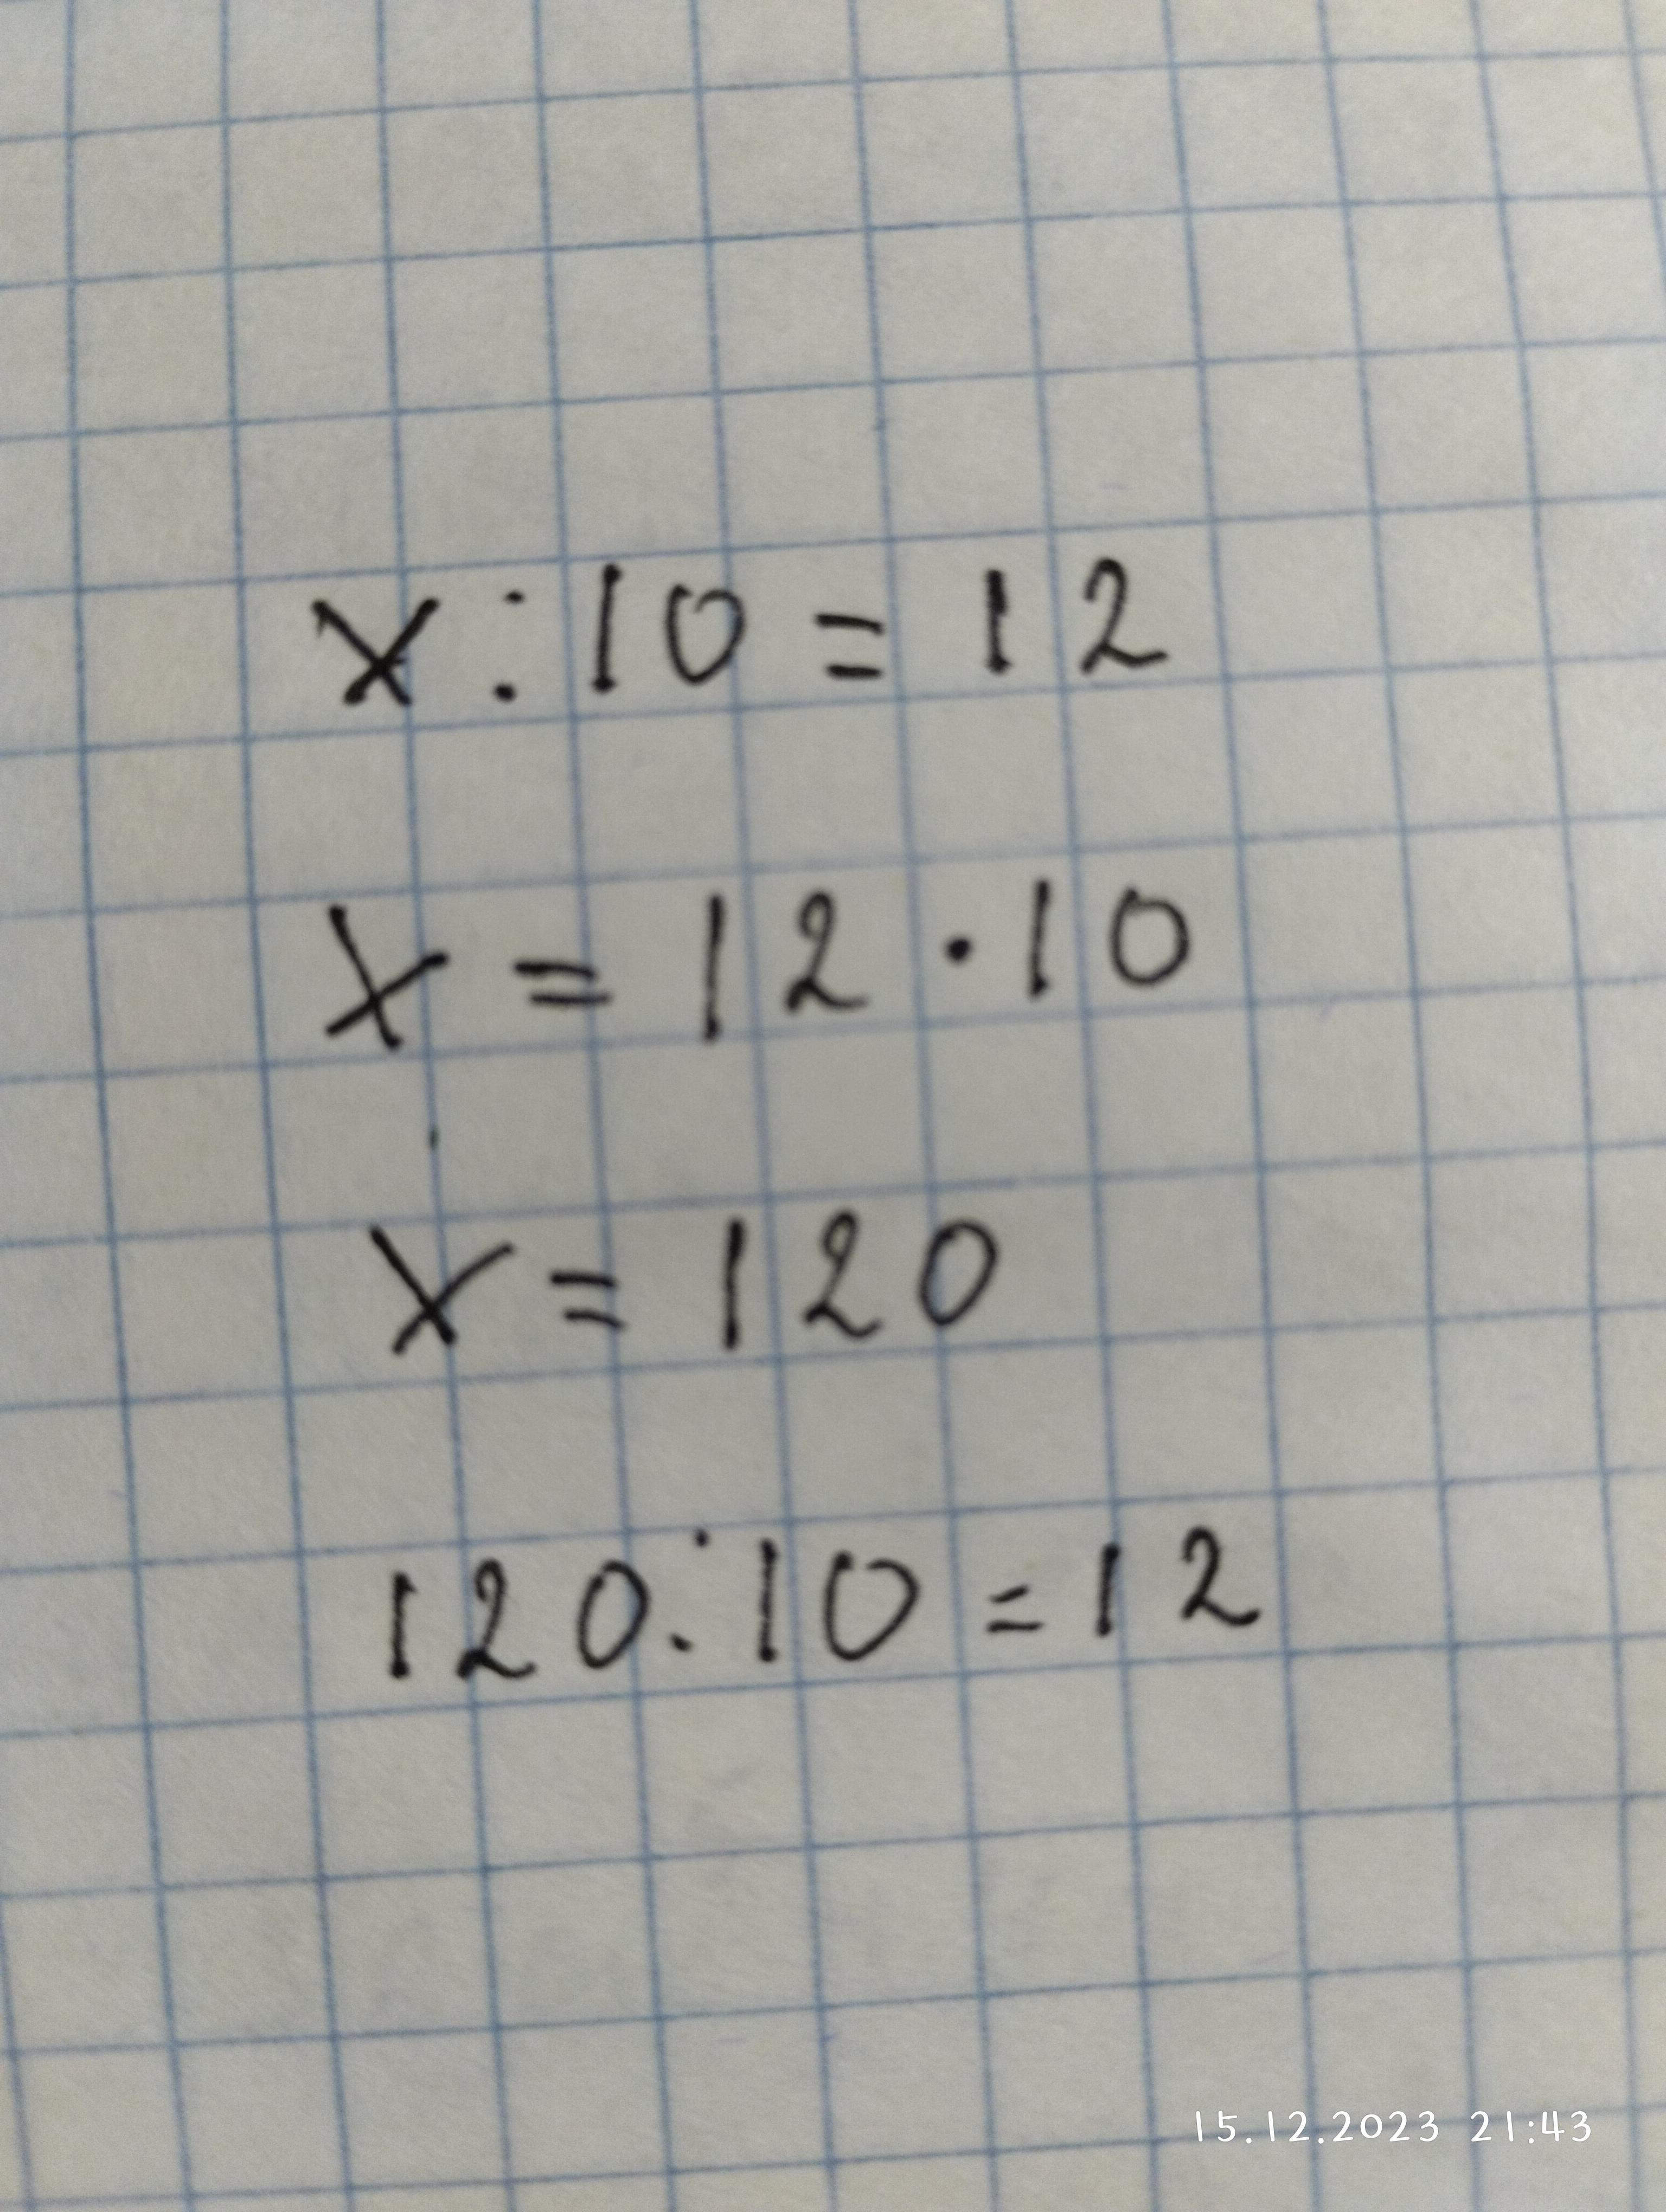 x : 10 = 12
x = 12 · 10
x = 120
120 : 10 = 12
15.12.2023 21:43